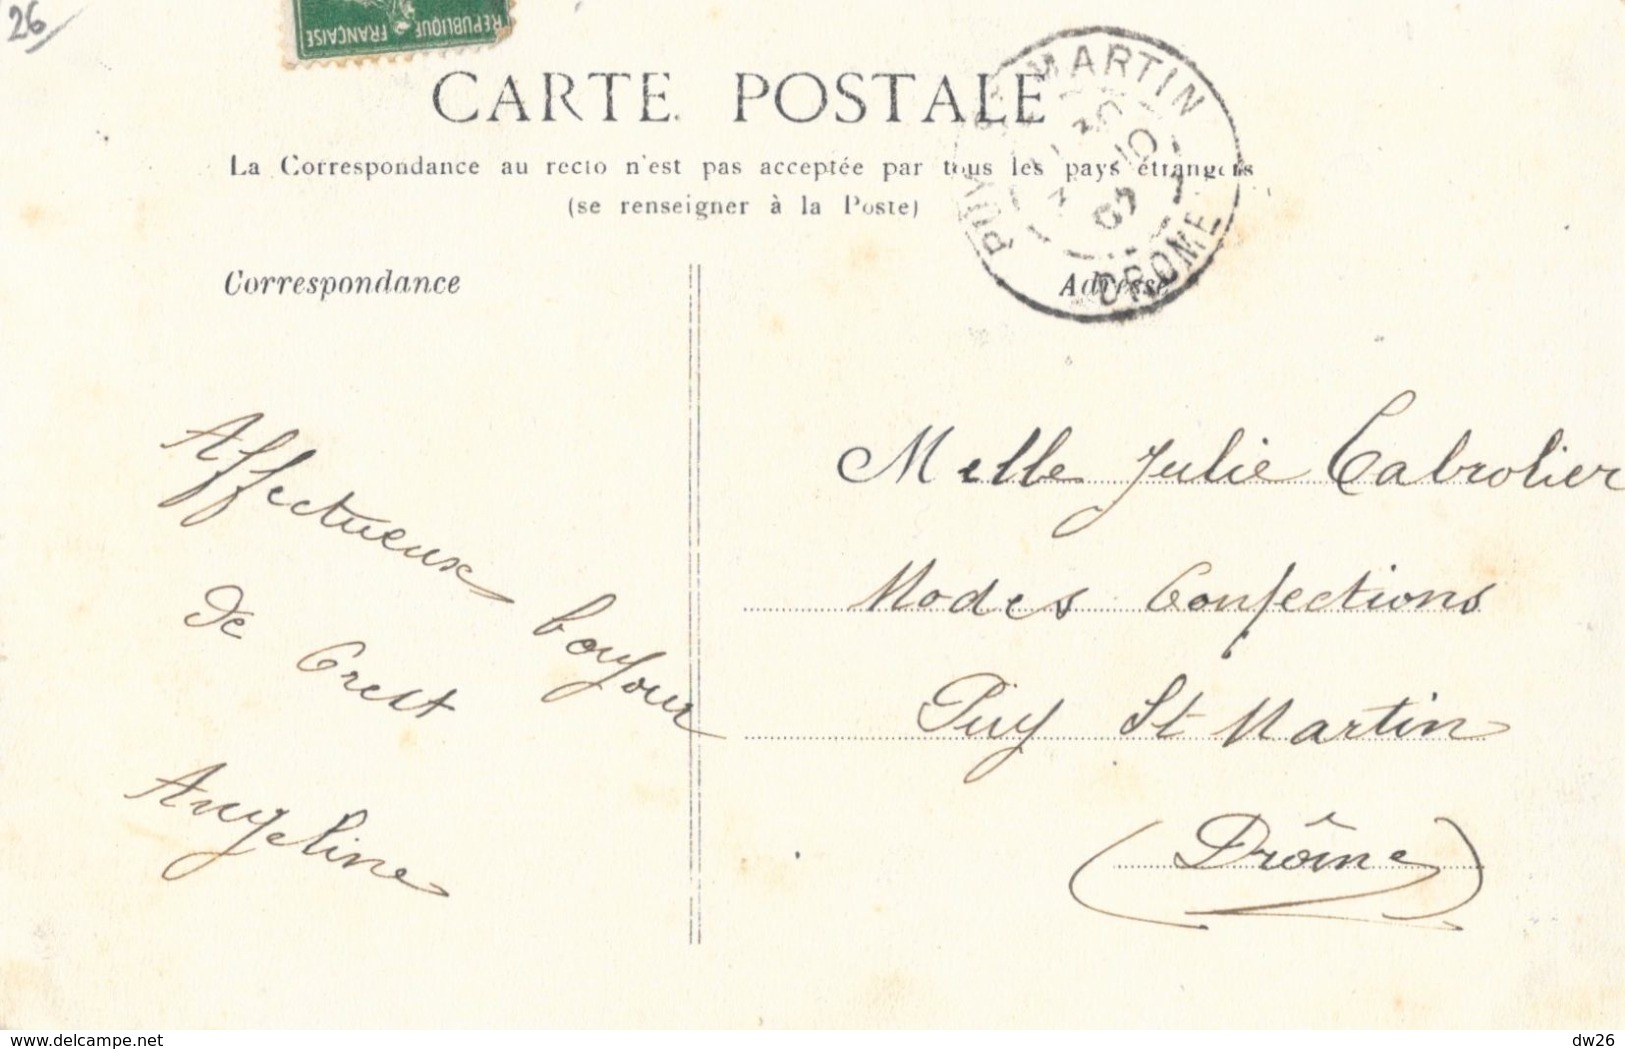 26
REPUBLIQUE FRANÇAISE
CARTE POSTALE
La Correspondance au recto n'est pas acceptée par tous les pays étrangers
(se renseigner à la Poste)
PUY ST MARTIN
30
10
DROME
Correspondance
Adresse
Affectueux bonjour
de Crest
Angeline
Melle Julie Cabrolier
Modes Confections
Puy St Martin
(Drôme)
delcampe.net
dw26